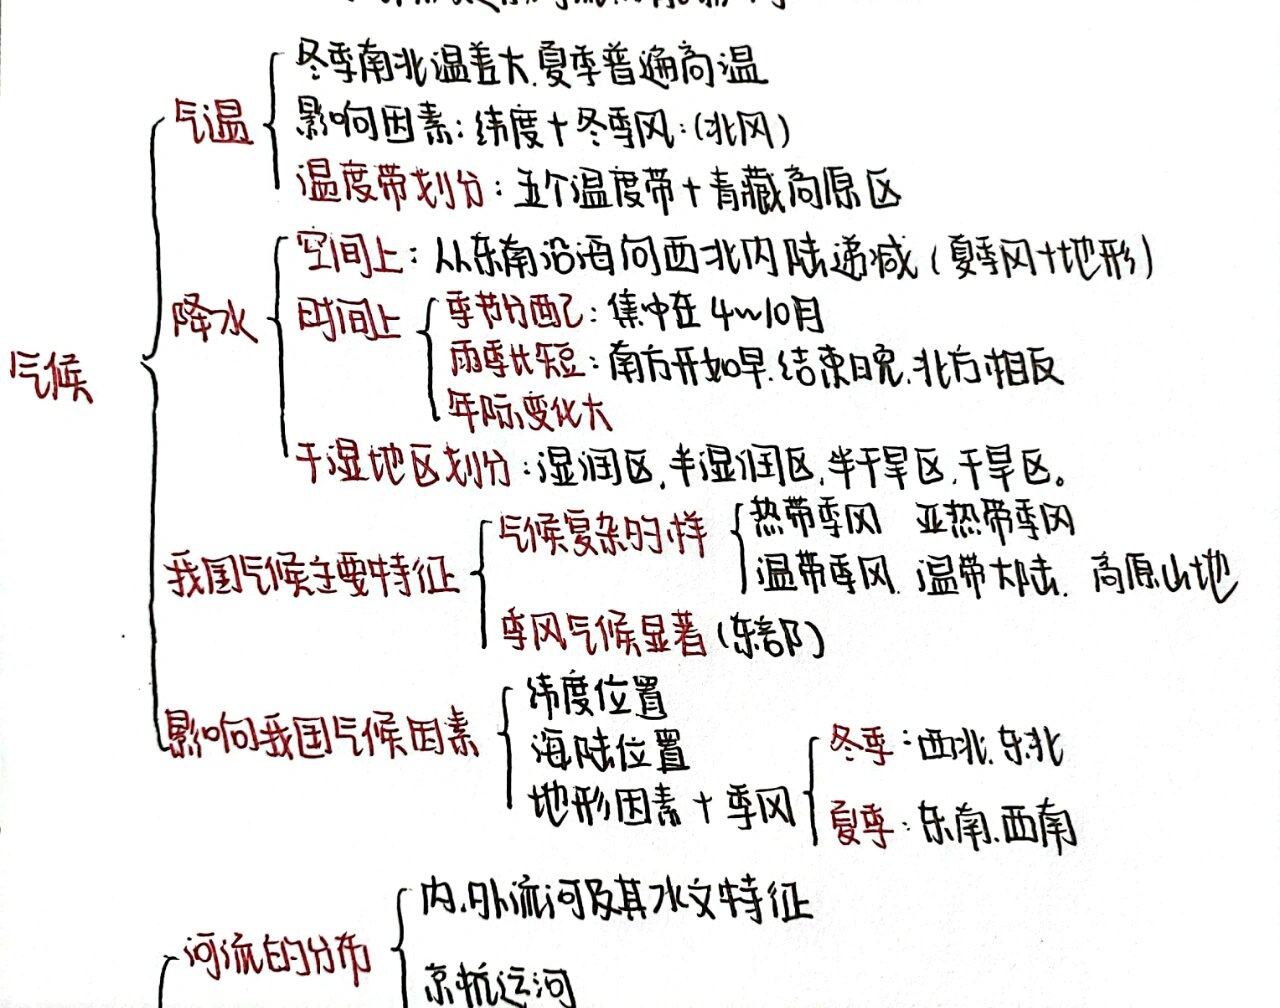 气温
冬季南北温差大.夏季普遍高温
影响因素:纬度+冬季风:(北风)
温度带划分:五个温度带+青藏高原区
降水
空间上:从东南沿海向西北内陆递减(夏季风+地形)
时间上
季节分配:集中在4~10月
雨季长短:南方开始早.结束晚.北方相反
年际变化大
气候
干湿地区划分:湿润区,半湿润区,半干旱区,干旱区。
我国气候主要特征
气候复杂多样
热带季风 亚热带季风
温带季风.温带大陆.高原山地
季风气候显著(东部)
影响我国气候因素
纬度位置
海陆位置
地形因素+季风
冬季:西北.东北
夏季:东南.西南
河流的分布
内.外流河及其水文特征
京杭运河